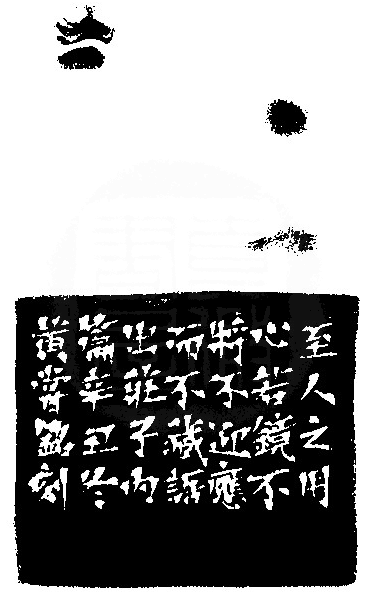 至人之用
心若鏡不
將不迎應
而不藏語
出莊子内
篇辛丑冬
黃嘗銘刻